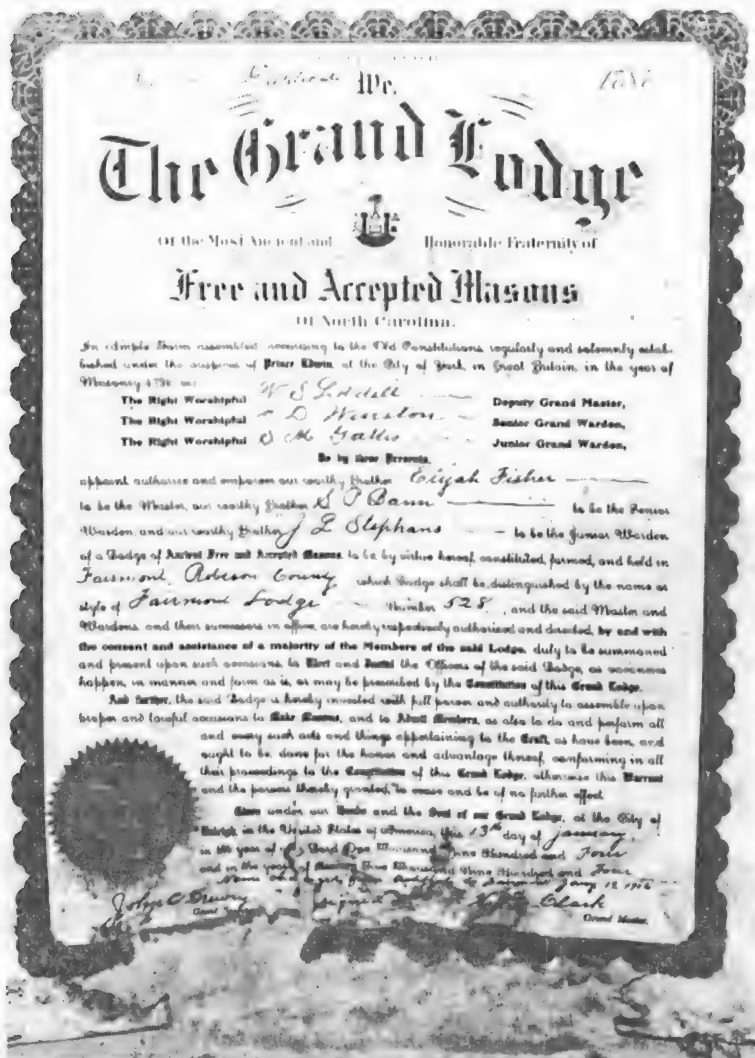 We,
The Grand Lodge
Of the Most Ancient and Honorable Fraternity of
Free and Accepted Masons
Of North Carolina,
In ample Form assembled, according to the Old Constitutions, regularly and solemnly estab-
lished under the auspices of Prince Edwin, at the City of York, in Great Britain, in the year of
Masonry
The Right Worshipful W S Liddell Deputy Grand Master,
The Right Worshipful D Winston Senior Grand Warden,
The Right Worshipful S M Gattis Junior Grand Warden,
Do by these Presents,
appoint authorize and empower our worthy Brother Elijah Fisher
to be the Master, our worthy Brother S P to be the Senior
Warden, and our worthy Brother J L Stephans to be the Junior Warden
of a Lodge of Ancient Free and Accepted Masons, to be by virtue hereof, constituted, formed, and held in
Fairmont, Robeson County which Lodge shall be distinguished by the name or
style of Fairmont Lodge Number 528, and the said Master and
Wardens, and their successors in office, are hereby respectively authorized and directed, by and with
the consent and assistance of a majority of the Members of the said Lodge, duly to be summoned
and present upon such occasions, to Elect and Install the Officers of the said Lodge, as vacancies
happen, in manner and form as is, or may be prescribed by the Constitution of this Grand Lodge.
And further, the said Lodge is hereby invested with full power and authority to assemble upon
proper and lawful occasions to Make Masons, and to Admit Members, as also to do and perform all
and every such acts and things appertaining to the Craft, as have been and
ought to be, done for the honor and advantage thereof, conforming in all
their proceedings to the Constitution of this Grand Lodge, otherwise this Warrant
and the powers thereby granted, to cease and be of no further effect.
Given under our Hands and the Seal of our Grand Lodge, at the City of
Raleigh, in the United States of America, this 13th day of January,
in the year of Lord One Thousand Nine Hundred and Four
and in the year of Masonry Five Thousand Nine Hundred and Four
Name to Fairmont Jany 12
John C Drewry Clark
Grand Grand Master.